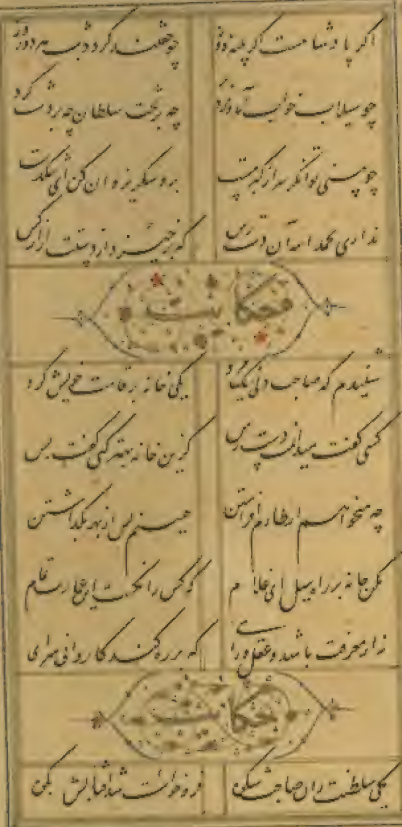 اگر پادشاهست و گر پینه دوز چو خفتند گردد شب هر دو روز
چو سیلاب خواب آمد و مرد برد چه بر تخت سلطان چه بر دشت کرد
چو بینی توانگر سر از کبر مست برو شکر یزدان کن ای تنگدست
نداری بحمد الله آن دست رس که برخیزد از دستت آزار کس
حکایت
شنیدم که صاحب دلی نیکمرد یکی خانه بر قامت خویش کرد
کسی گفت میدانمت دست رس کزین خانه بهتر کنی گفت بس
چه میخواهم از طارم افراشتن همینم بس از بهر بگذاشتن
مکن خانه بر راه سیل ای غلام که کس را نگشت این عمارت تمام
نه از معرفت باشد و عقل و رای که بر ره کند کاروانی سرای
حکایت
یکی سلطنت ران صاحب شکوه فرو خواست شد آفتابش بکوه